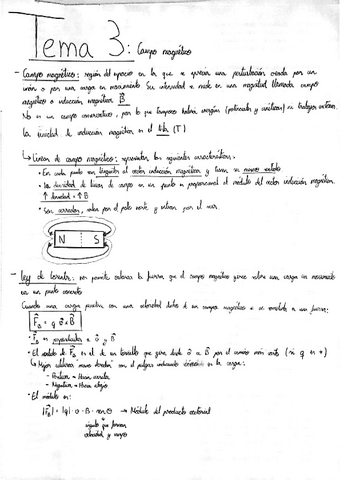 Tema 3: Campo magnético
- Campo magnético: región del espacio en la que se aprecia una perturbación creada por un
imán o por una carga en movimiento. Su intensidad se mide en una magnitud llamada campo
magnético o inducción magnética B⃗
No es un campo conservativo, por lo que tampoco habrá energía
La unidad de inducción magnética es el Tesla (T)
↳ Líneas de campo magnético: representan las siguientes características:
• En cada punto son tangentes al vector inducción magnética y tienen su mismo sentido
• La densidad de líneas de campo en un punto es proporcional al módulo del vector inducción magnética.
↑ densidad = ↑ B
• Son cerradas, salen por el polo norte y entran por el sur.
N S
- Ley de Lorentz: nos permite calcular la fuerza que el campo magnético ejerce sobre una carga en movimiento
en un punto concreto
Cuando una carga positiva con una velocidad dentro de un campo magnético se ve sometida a una fuerza:
F⃗B = q v⃗ x B⃗
• F⃗B es perpendicular a v⃗ y B⃗
• El sentido de F⃗B es el de un tornillo que gira desde v⃗ a B⃗ por el camino más corto (si q es +)
↳ Mejor utilizar "mano derecha" con el pulgar indicando de la carga:
- Positiva → Hacia arriba
- Negativa → Hacia abajo
• El módulo es:
|F⃗B| = |q| · v · B · sen θ → Módulo del producto vectorial
ángulo que forman
velocidad y campo